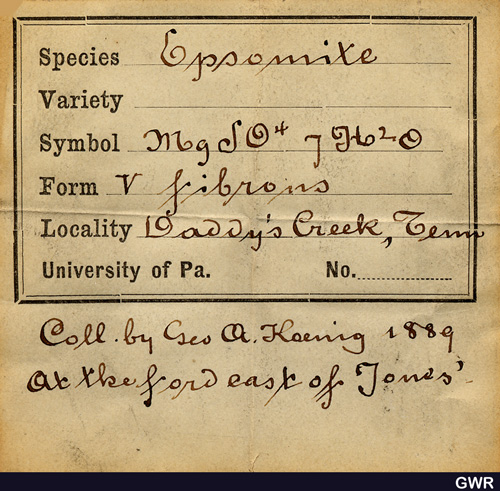 Species Epsomite
Variety
Symbol MgSO4 7H2O
Form V fibrous
Locality Daddy's Creek, Tenn
University of Pa. No.
Coll. by Geo A. Koenig 1889
At the ford east of Jones'
GWR